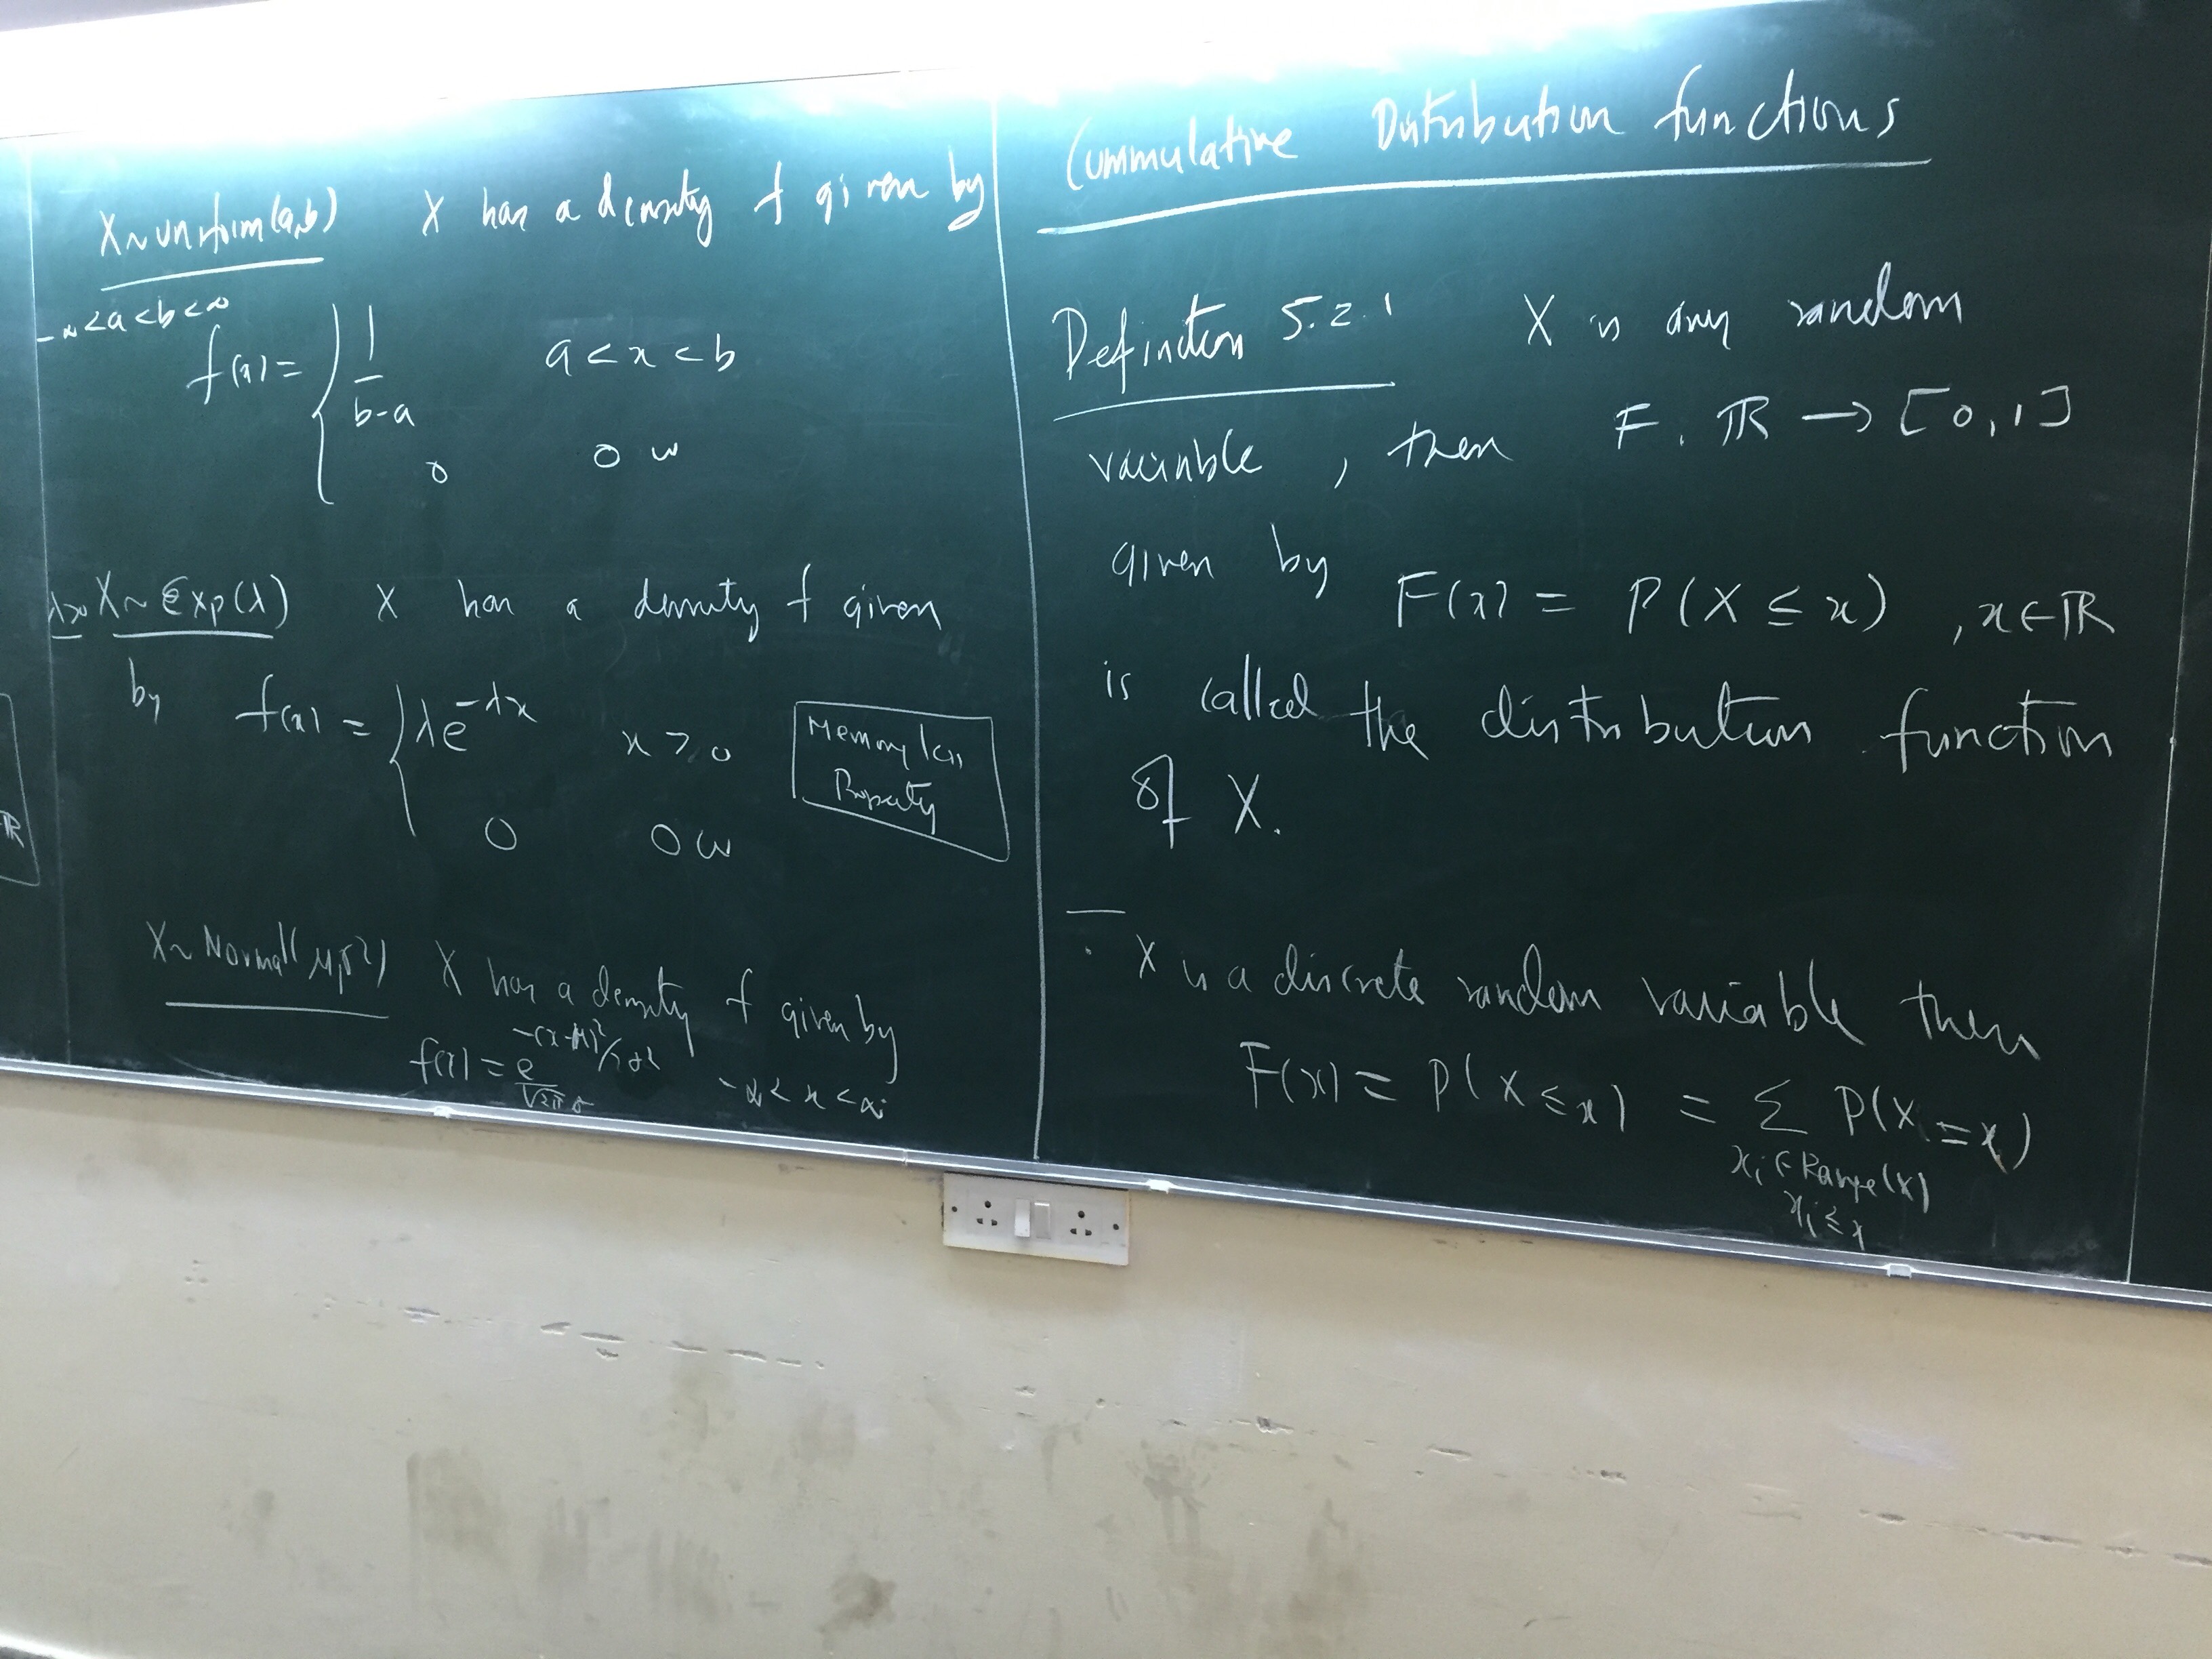 X ~ Uniform(a,b) X has a density f given by
-∞ < a < b < ∞
f(x) = { 1/(b-a) a < x < b
0 o w
λ>0 X ~ Exp(λ) X has a density f given
by f(x) = { λe^{-λx} x > 0
0 o w
Memoryless
Property
X ~ Normal(μ,σ²) X has a density f given by
f(x) = e^{-(x-μ)²/2σ²}/(√2π σ) -∞ < x < ∞
R
Cummulative Distribution functions
Definition 5.2.1 X is any random
variable, then F: ℝ → [0,1]
given by F(x) = P(X ≤ x), x ∈ ℝ
is called the distribution function
of X.
· X is a discrete random variable then
F(x) = P(X ≤ x) = Σ P(X = x)
x_i ∈ Range(X)
x_i ≤ x